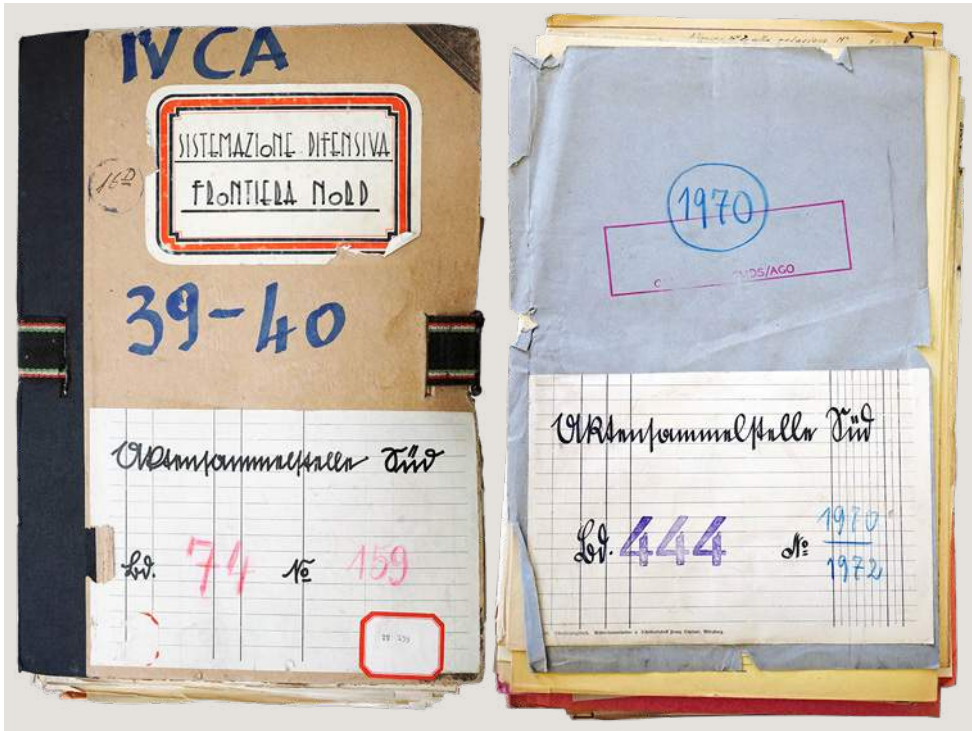 IV CA
SISTEMAZIONE DIFENSIVA
FRONTIERA NORD
16D
39-40
Aktensammelstelle Süd
Bd. 74 No 159
1970
MDS/AGO
Aktensammelstelle Süd
Bd. 444 No 1970
1972